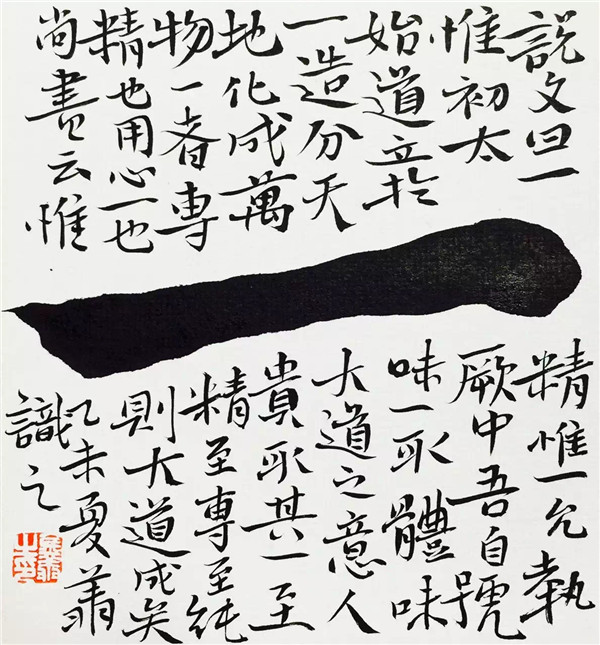 說文曰一
惟初太
始道立於
一造分天
地化成萬
物一者專
精也用心一也
尚書云惟
一
精惟一允執
厥中吾自號
味一取體味
大道之意人
貴取其一至
精至專至純
則大道成矣
乙未夏
識之